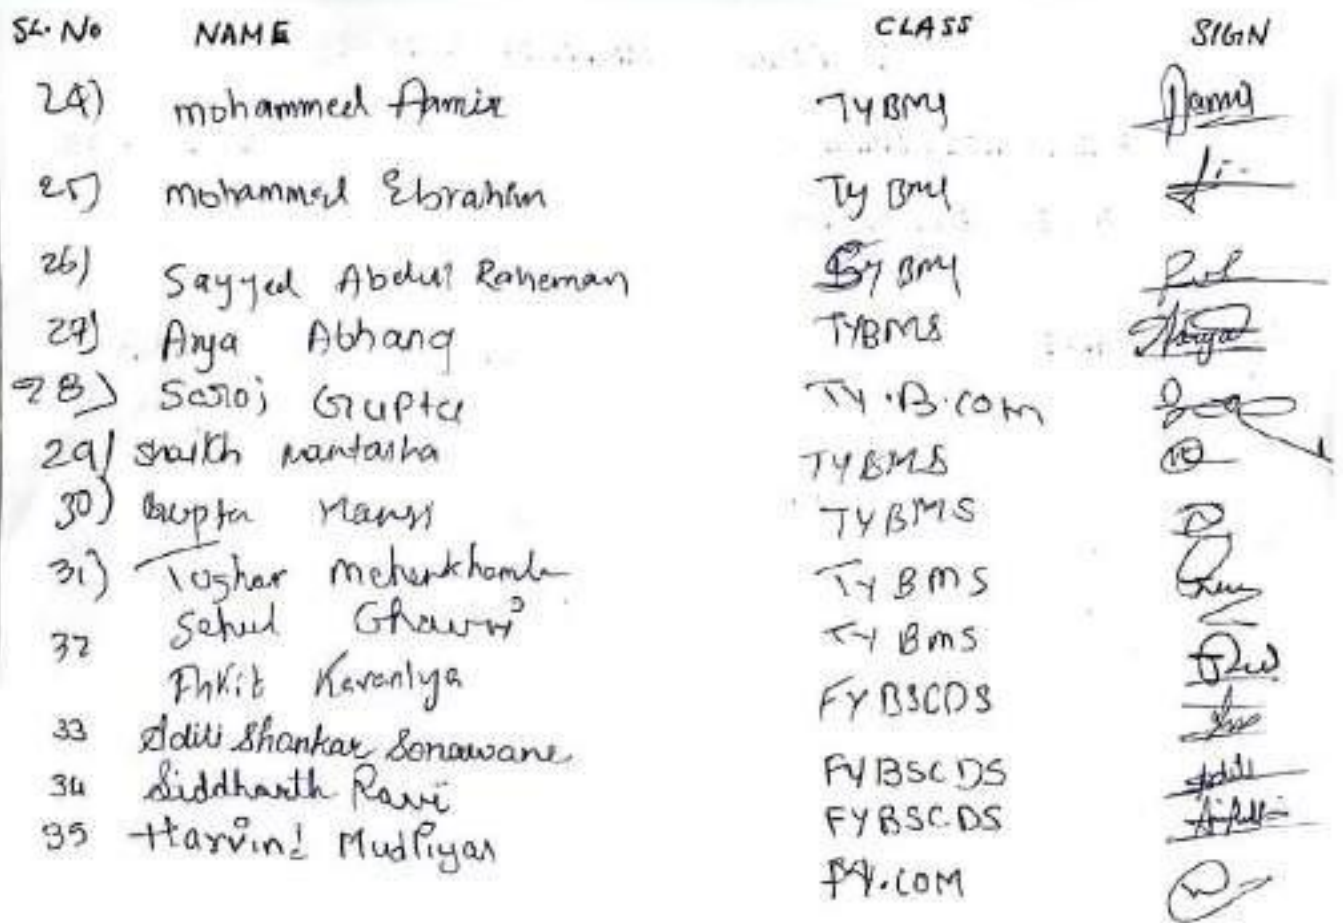 SL. No NAME CLASS SIGN
24) mohammed Aamir TYBMS
25) mohammed Ebrahim Ty BMS
26) Sayyed Abdul Raheman SY BMS
27) Arya Abhang TYBMS
28) Saroj Gupta TY.B.COM
29) Shaikh Nantasha TYBMS
30) Gupta Mansi TYBMS
31) Tushar TY BMS
32 TY BMS
Ankit FYBSCDS
33 Aditi Shankar Sonawane FYBSCDS
34 Siddharth Ravi FYBSCDS
35 Harvind Mudliyar FY.COM